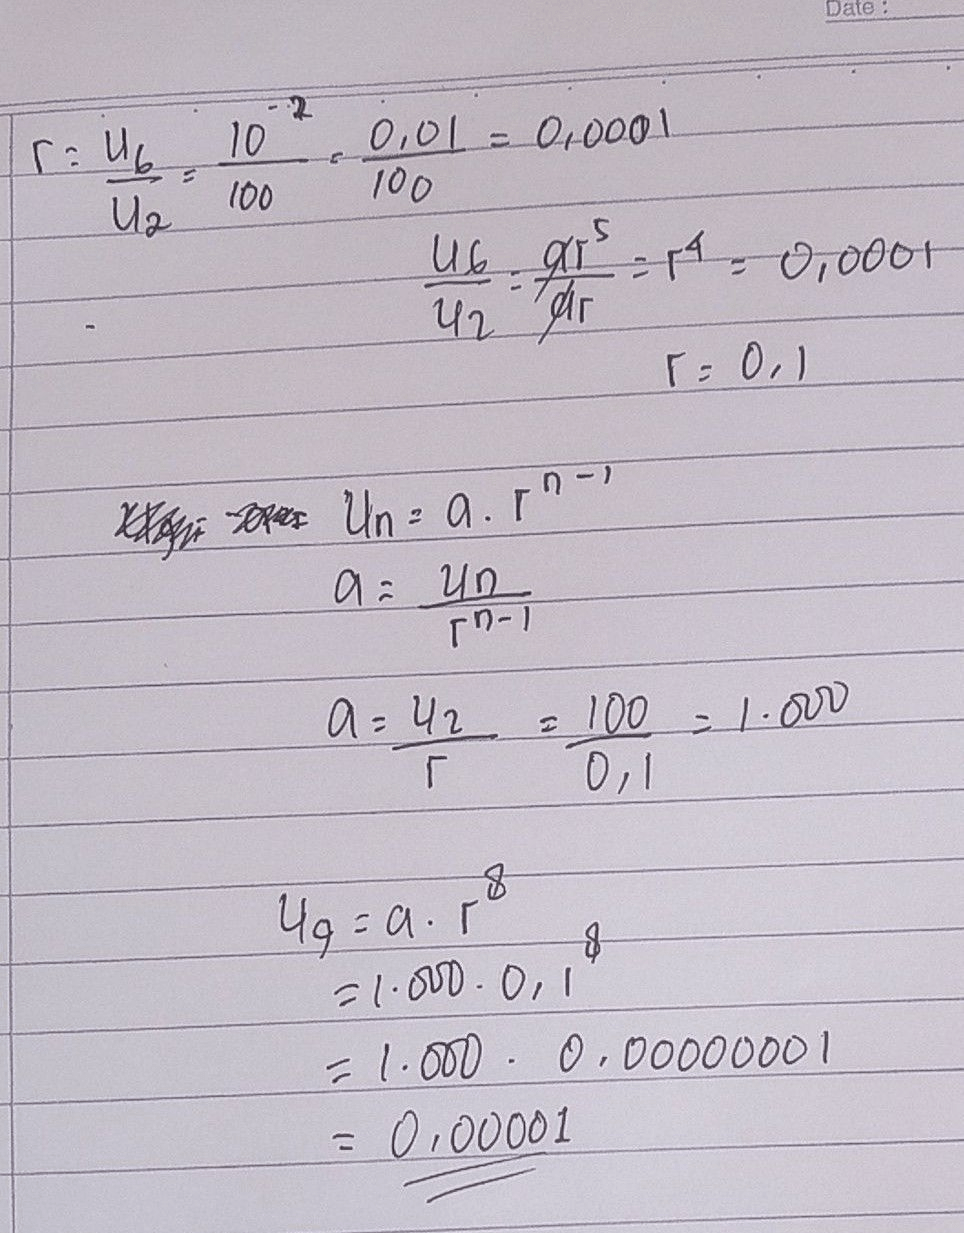 Date :
r = U₆/U₂ = 10⁻²/100 = 0,01/100 = 0,0001
U₆/U₂ = ar⁵/ar = r⁴ = 0,0001
r = 0,1
Un = a . rⁿ⁻¹
a = Un/rⁿ⁻¹
a = U₂/r = 100/0,1 = 1.000
U₉ = a . r⁸
= 1.000 . 0,1⁸
= 1.000 . 0.00000001
= 0,00001